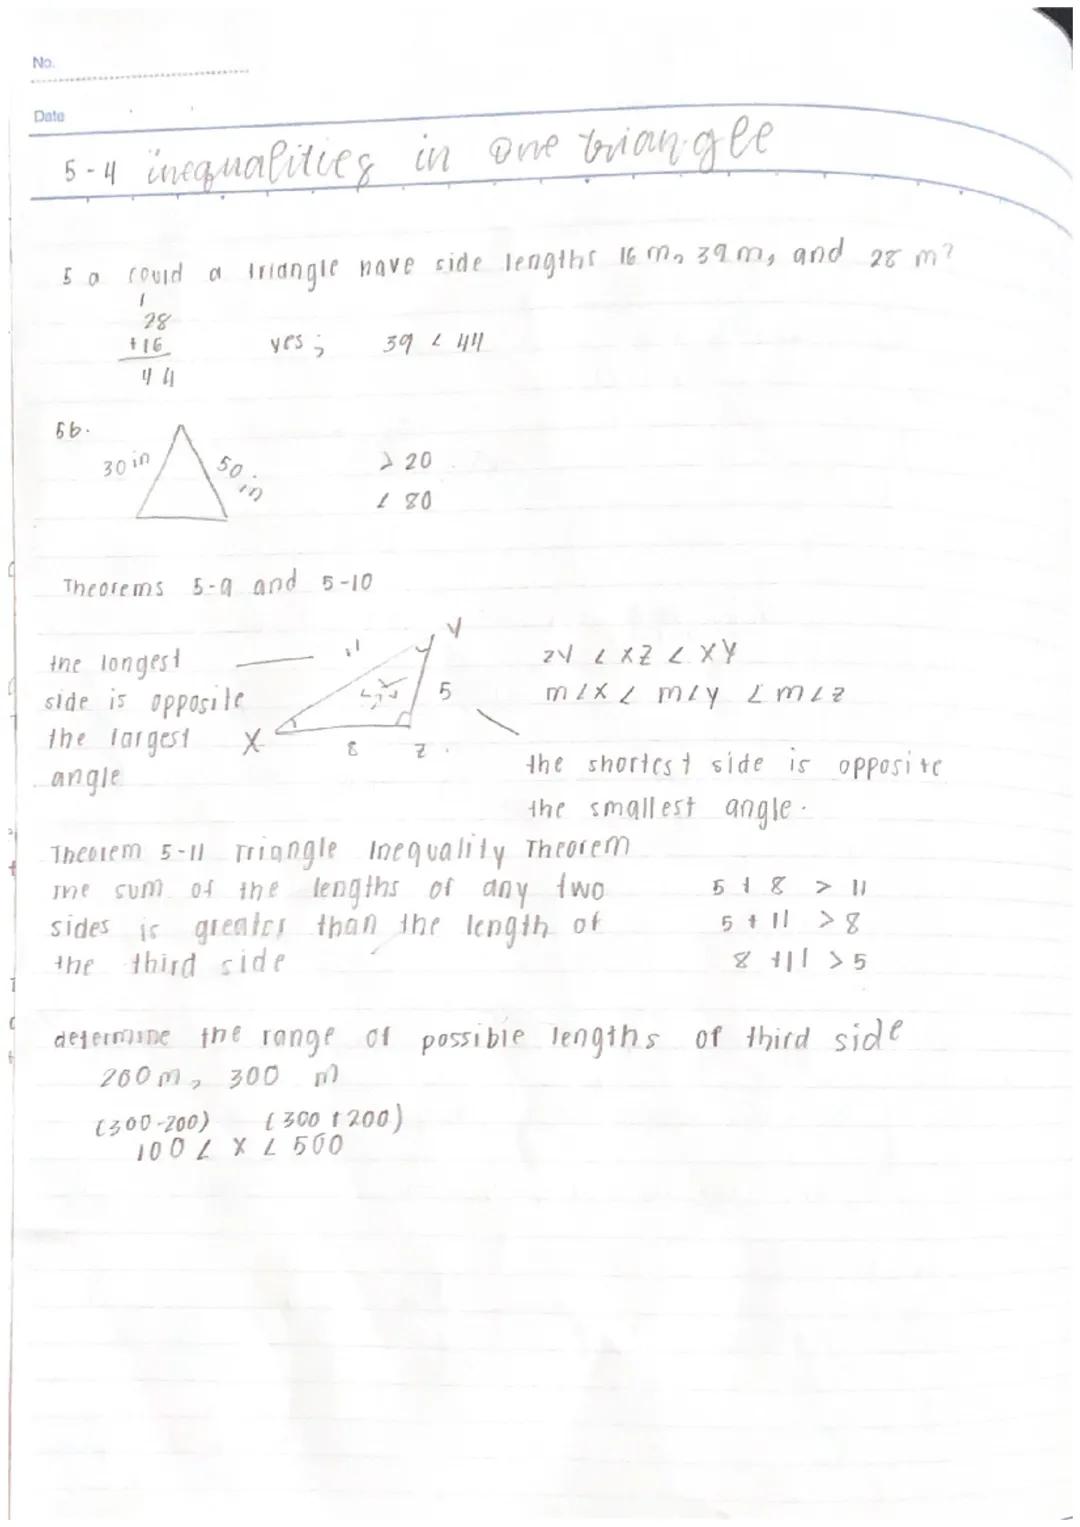 No.
Date
5-4 inequalities in one triangle
5a could a triangle have side lengths 16 m, 39 m, and 28 m?
1
28
+16
44
yes; 39 < 44
5b.
30 in
50 in
> 20
< 80
Theorems 5-9 and 5-10
the longest
side is opposite
the largest
angle
11
Y
5
X
8
Z
ZY < XZ < XY
m∠X < m∠y < m∠z
the shortest side is opposite
the smallest angle.
Theorem 5-11 Triangle Inequality Theorem
The sum of the lengths of any two
sides is greater than the length of
the third side
5 + 8 > 11
5 + 11 > 8
8 + 11 > 5
determine the range of possible lengths of third side
200 m, 300 m
(300-200) (300+200)
100 < X < 500